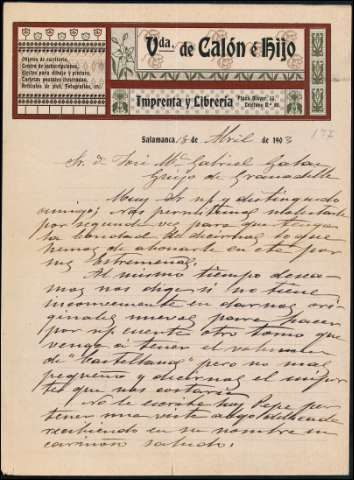 Objetos de escritorio,
Centro de suscripciones,
Efectos para dibujo y pintura,
Tarjetas postales ilustradas,
Artículos de piel, Fotografías, etc.
Vda. de Calón é Hijo
Imprenta y Librería
Plaza Mayor,
Teléfono
Salamanca 18 de Abril de 1903
Sr. D. José Mª Gabriel Galan
Guijo de Granadilla
Muy Sr. n/ y distinguido
amigo: nos permitimos molestarle
por segunda vez para que tenga
la bondad de decirnos lo que
hemos de abonarle en cta por
sus Extremeñas.
Al mismo tiempo desea-
mos nos diga si no tiene
inconveniente en darnos ori-
ginales nuevos para hacer
por n/ cuenta otro tomo que
venga a tener el volumen
de "Castellanas" pero no mas
pequeño y decirnos el impor-
te que nos costaria
No le escribe hoy Pepe por
tener una vista algo delicada
recibiendo en su nombre un
cariñoso saludo.